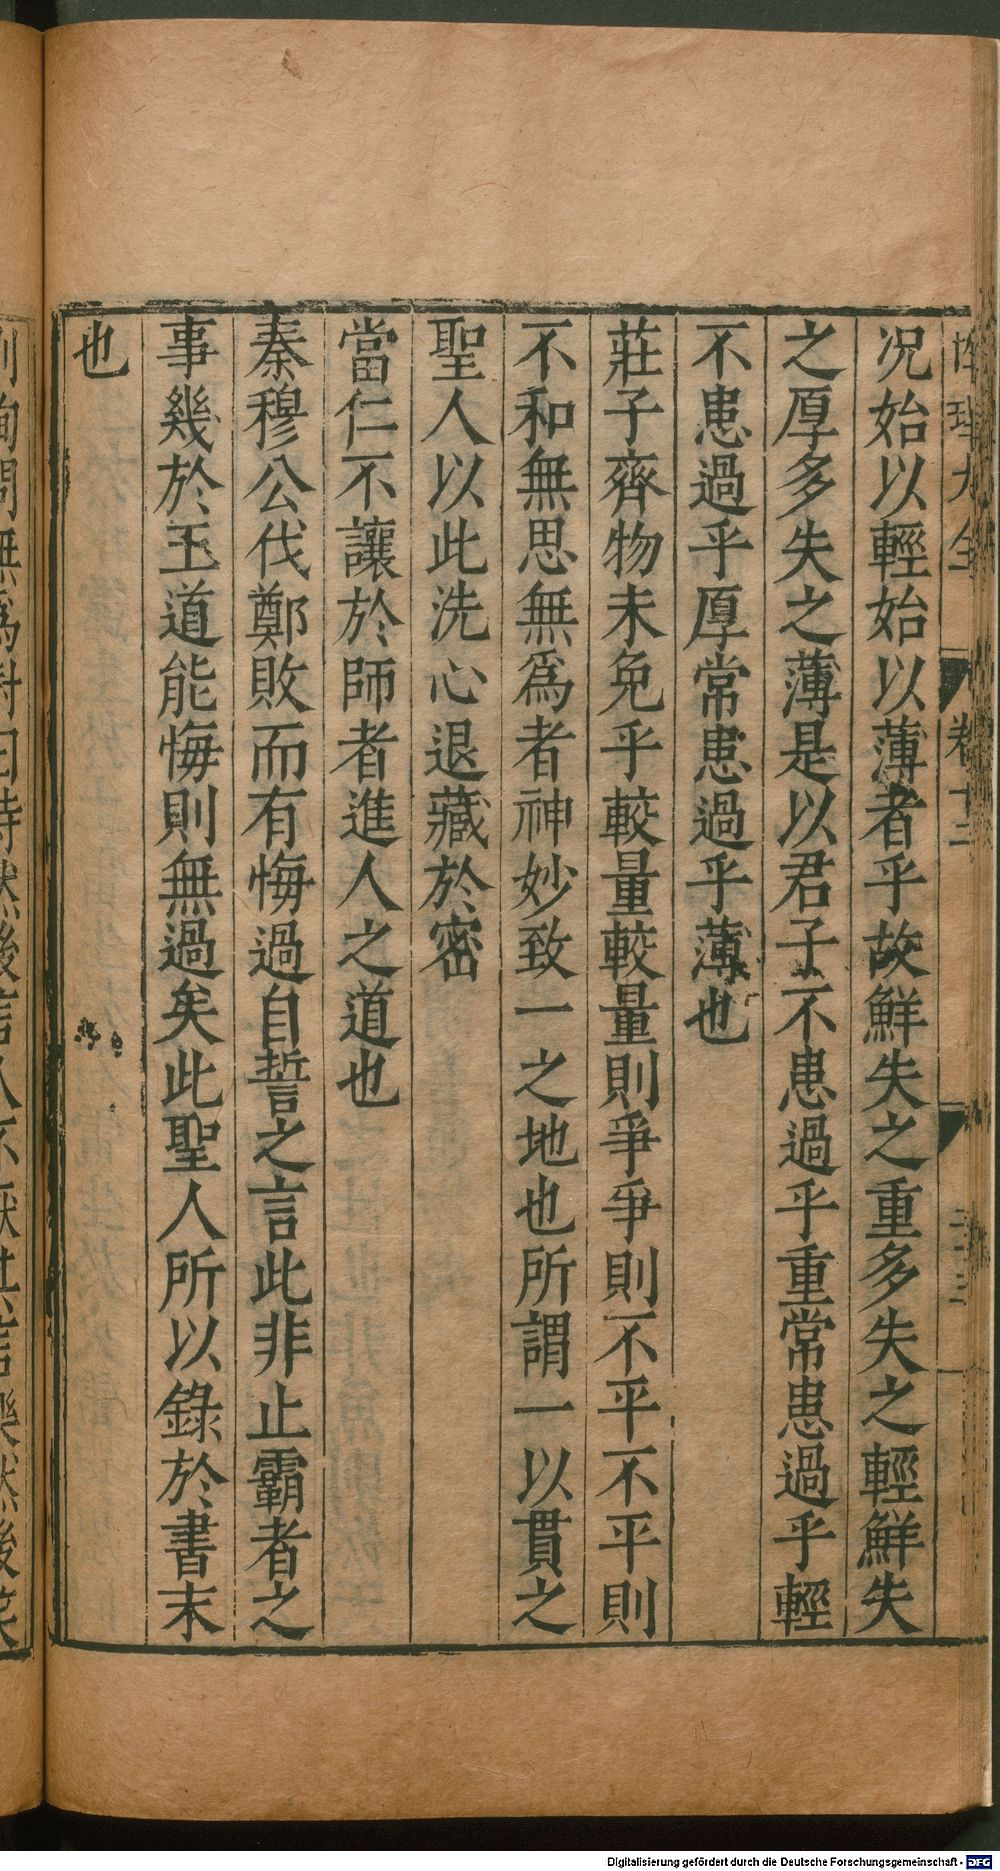 性理大全 卷十二
况始以輕始以薄者乎故鮮失之重多失之輕鮮失
之厚多失之薄是以君子不患過乎重常患過乎輕
不患過乎厚常患過乎薄也
莊子齊物未免乎較量較量則爭爭則不平不平則
不和無思無爲者神妙致一之地也所謂一以貫之
聖人以此洗心退藏於密
當仁不讓於師者進人之道也
秦穆公伐鄭敗而有悔過自誓之言此非止霸者之
事幾於王道能悔則無過矣此聖人所以錄於書末
也
Digitalisierung gefördert durch die Deutsche Forschungsgemeinschaft - DFG